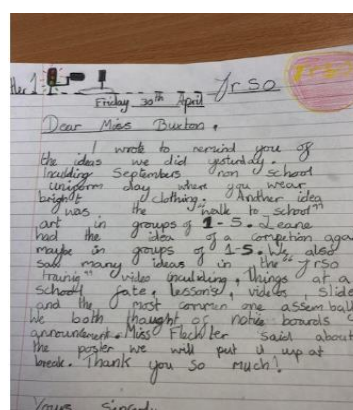 tter 1
JrSO
JrSo
Friday 30th April
Dear Miss Buxton,
I wrote to remind you of
the ideas we did yesturday.
Inculding Septembers non school
uniform day where you wear
bright clothing. Another idea
was the "walk to school"
art in groups of 1-5. Leane
had the idea of a competion aga
maybe in groups of 1-5. We also
saw many ideas in the "JrSO
trainig" video inculding, things at a
school fate, lessons, videos slide
and the most common one assembl
We both thought of notice boards
announcement. Miss Flechter said about
the poster we will put it up at
break. Thank you so much!
Yours Sincerly